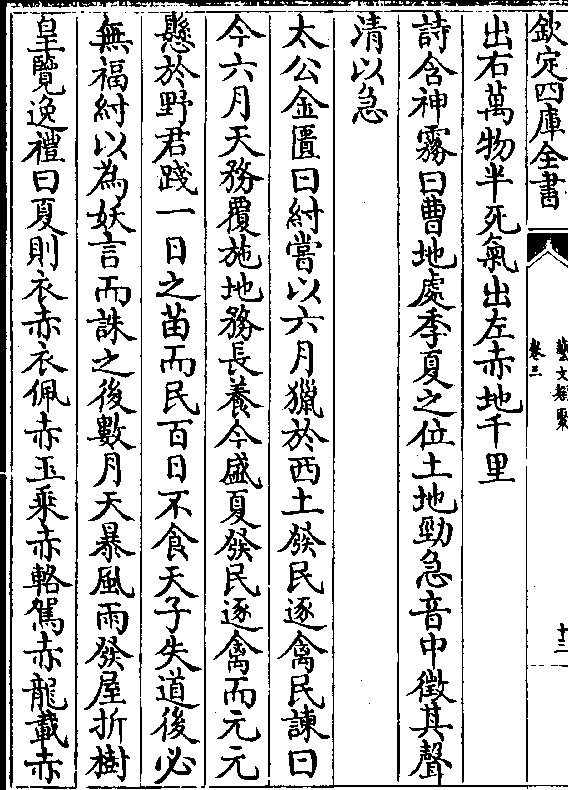 欽定四庫全書
藝文類聚
卷三
十三
出右萬物半死氣出左赤地千里
詩含神霧曰曹地處季夏之位土地勁急音中徵其聲
清以急
太公金匱曰紂嘗以六月獵於西土發民逐禽民諫曰
今六月天務覆施地務長養今盛夏發民逐禽而元元
懸於野君踐一日之苗而民百日不食天子失道後必
無福紂以為妖言而誅之後數月天暴風雨發屋折樹
皇覽逸禮曰夏則衣赤衣佩赤玉乘赤輅駕赤龍載赤